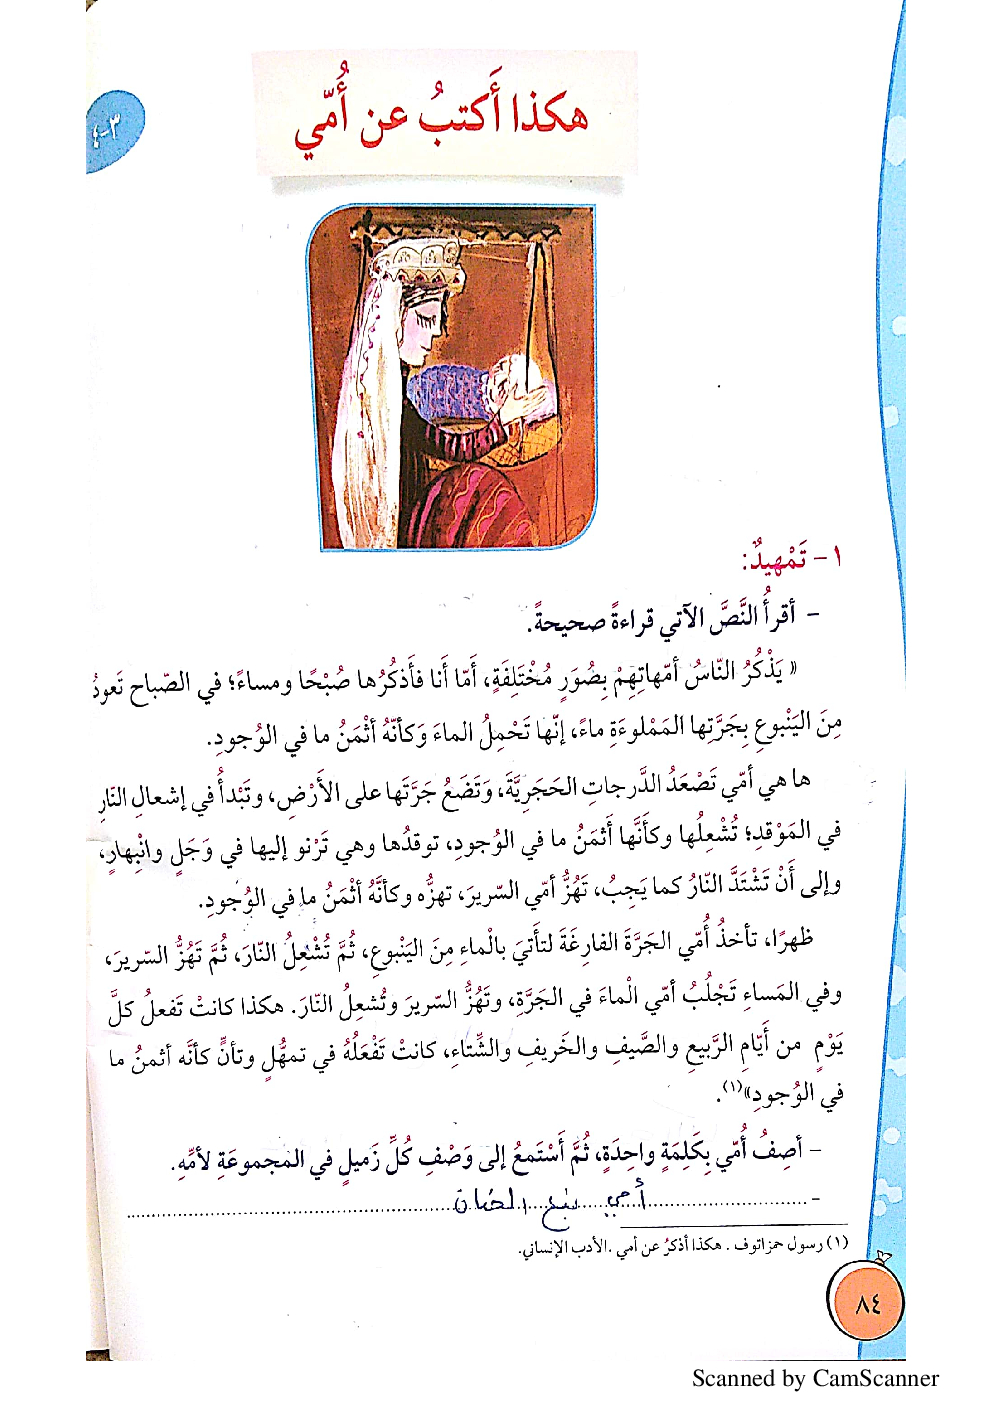 ٣-٤
هكذا أَكتبُ عن أُمّي
١ - تَمْهيدٌ:
- أقرأُ النَّصَّ الآتي قراءةً صحيحةً.
« يَذْكُرُ النّاسُ أمّهاتِهِمْ بِصُوَرٍ مُخْتَلِفَةٍ، أمّا أنا فَأذكُرُها صُبْحًا ومساءً؛ في الصّباح تَعودُ
مِنَ اليَنْبوعِ بِجَرَّتِها المَمْلوءَةِ ماءً، إنّها تَحْمِلُ الماءَ وَكأنّهُ أثْمَنُ ما في الوُجودِ.
ها هي أمّي تَصْعَدُ الدَّرجاتِ الحَجَرِيَّةَ، وَتَضَعُ جَرَّتَها على الأَرْضِ، وتَبْدأُ في إشعالِ النّارِ
في المَوْقدِ؛ تُشْعِلُها وكأنَّها أَثمَنُ ما في الوُجودِ، توقدُها وهي تَرْنو إليها في وَجَلٍ وانْبِهارٍ،
وإلى أَنْ تَشْتَدَّ النّارُ كما يَجبُ، تَهُزُّ أمّي السّريرَ، تهزُّه وكأنَّهُ أثْمَنُ ما في الوُجودِ.
ظهرًا، تأخذُ أُمّي الجَرَّةَ الفارِغَةَ لتأتيَ بالْماءِ مِنَ اليَنْبوعِ، ثُمَّ تُشْعِلُ النّارَ، ثُمَّ تَهُزُّ السّريرَ،
وفي المَساءِ تَجْلُبُ أمّي الْماءَ في الجَرَّةِ، وتَهُزُّ السّريرَ وتُشعِلُ النّارَ. هكذا كانتْ تَفعلُ كلَّ
يَوْمٍ من أَيّامِ الرَّبيعِ والصَّيفِ والخَريفِ والشِّتاءِ، كانتْ تَفْعَلُهُ في تمهُّلٍ وتأنٍّ كأنَّه أثمنُ ما
في الوُجودِ»(١).
- أصِفُ أُمّي بِكَلِمَةٍ واحِدَةٍ، ثُمَّ أَسْتَمعُ إلى وَصْفِ كُلِّ زَميلٍ في المَجموعَةِ لأمِّهِ.
- أمي نبع الحنان
(١) رسول حمزاتوف . هكذا أذكرُ عن أمي .الأدب الإنساني.
٨٤
Scanned by CamScanner